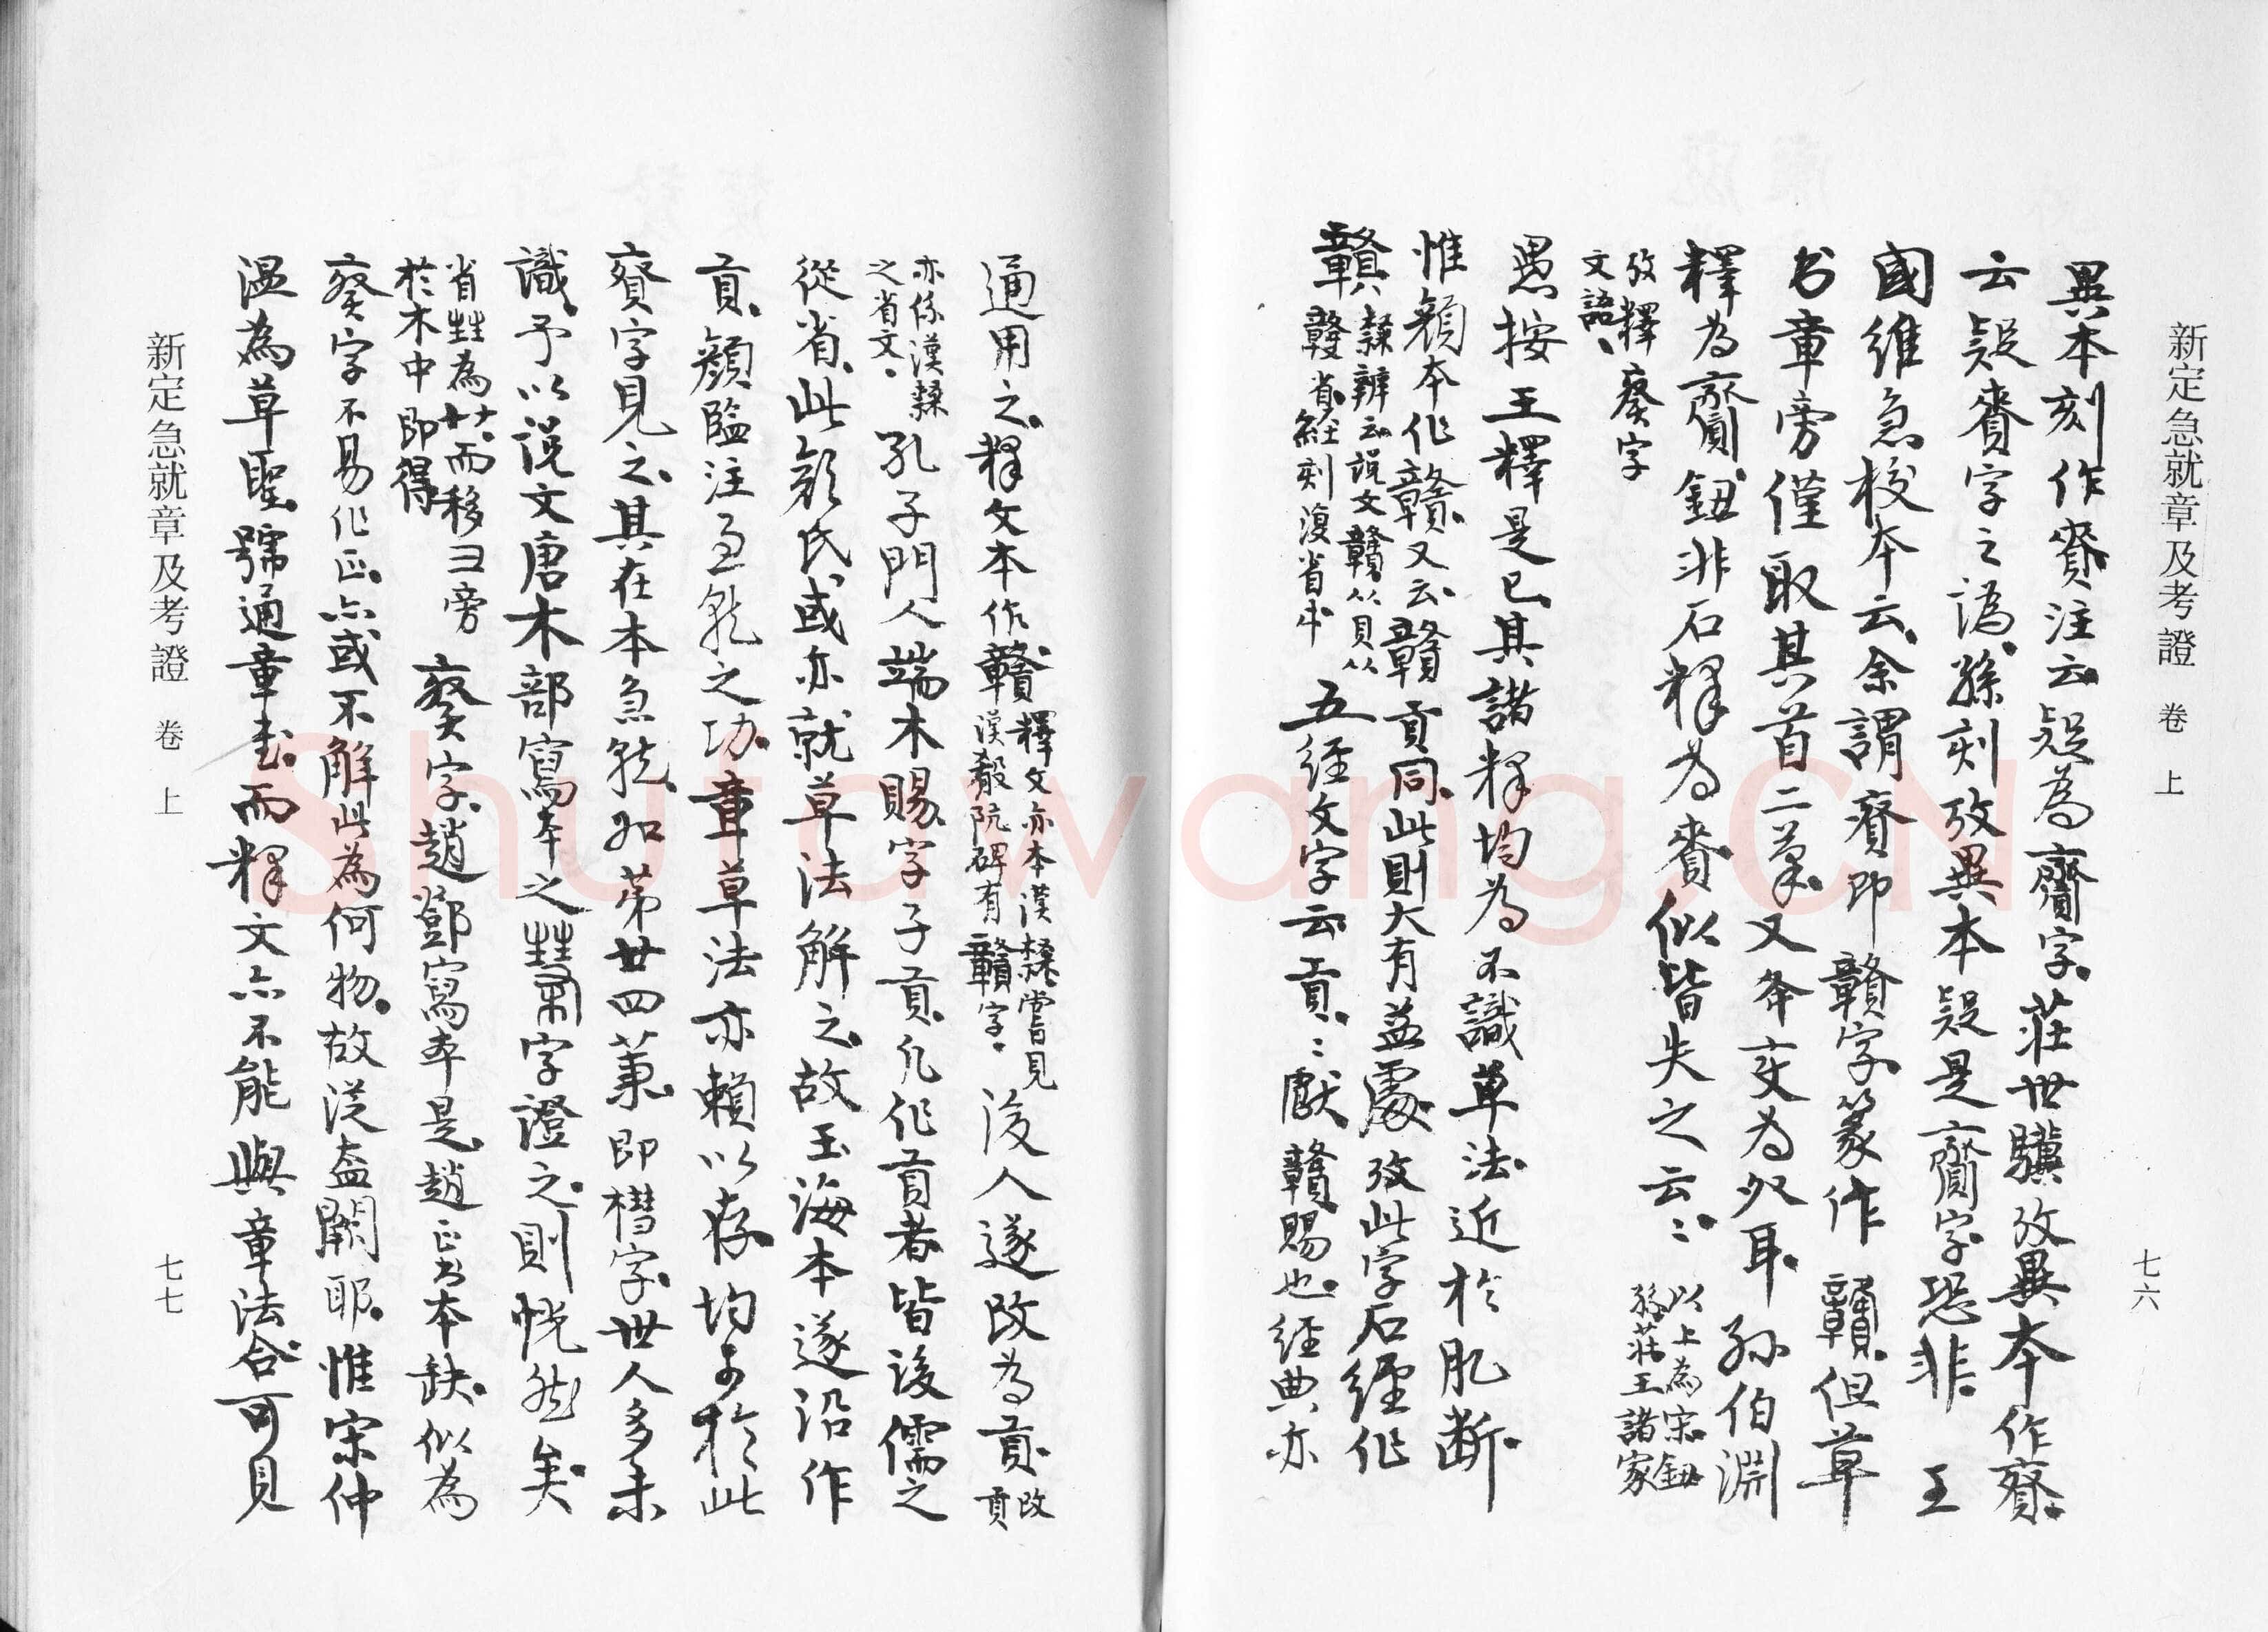 新定急就章及考證 卷上
七六
異本刻作賚注云疑為齎字莊世驥攷異本作
云疑賚字之譌孫刻攷異本疑是齎字恐非 王
國維急校本云余謂 即贛字篆作贛但草
书章旁僅取其首二筆又夅变为 耳孙伯淵
釋为齎鈕非石释为賚似皆失之云〻以上為宋鈕
孫莊王諸家
攷釋 字
文語
愚按王釋是已其諸释均为不識草法近於肊断
惟顔本作贛又云贛貢同此則大有益處攷此字石經作
贛隸辨云説文贛从貝从
省經刻復省
五經文字云貢〻獻贛賜也經典亦
通用之释文本作贛釋文亦本漢隸嘗見
漢殽阬碑有贛字
後人遂改为貢改
貢
亦係漢隸
之省文
孔子門人端木賜字子貢凡作貢者皆後儒之
從省此顔氏或亦就草法解之故玉海本遂沿作
貢顔監注急就之功章草法亦賴以存均可於此
字見之其在本急就如第廿四菓即 字世人多未
識予以説文唐木部寫本之 字證之則恍然矣
省 為 而移彐旁
於木中即得
字趙鄧寫本是趙正书本缺似為
字不易作正亦或不解此為何物故從盍闕耶惟宋仲
溫為草聖號通章书而释文亦不能與章法合可見
新定急就章及考證 卷上
七七
Shufawang.CN